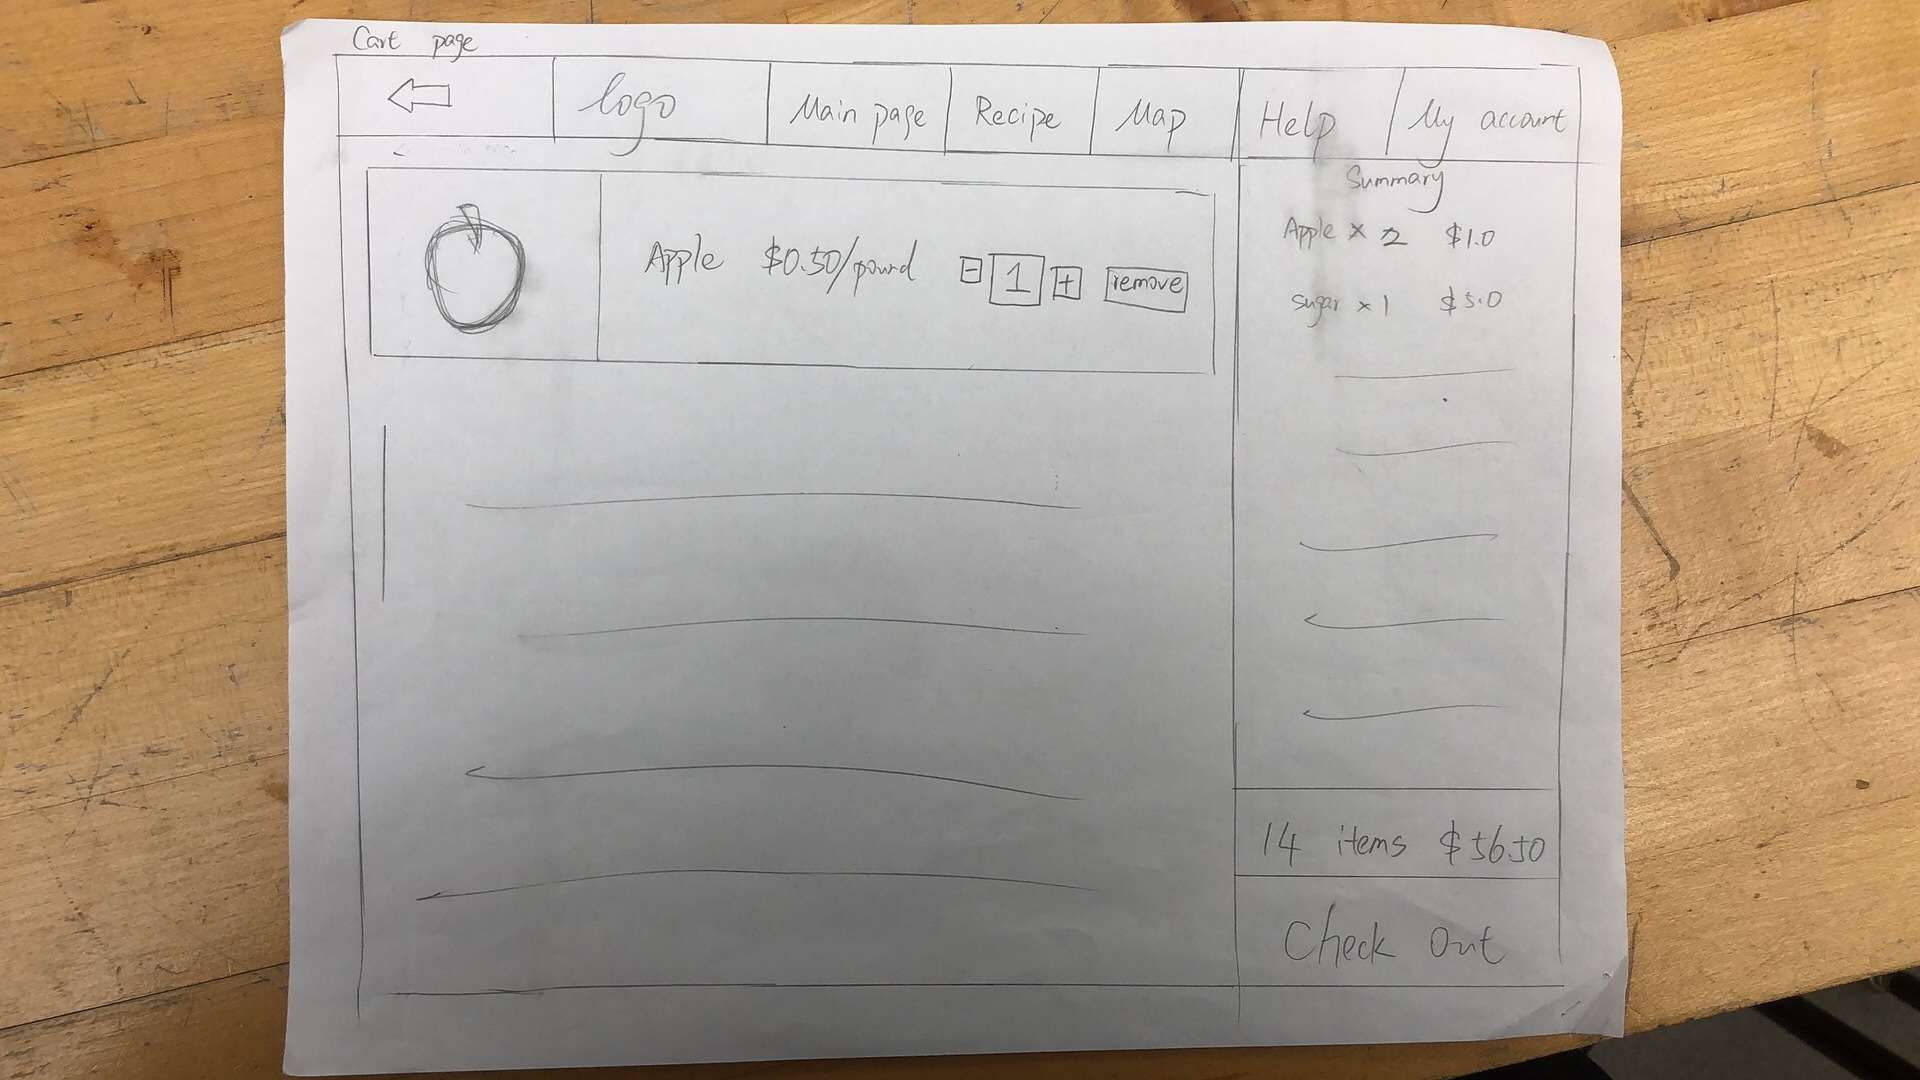 Cart page
logo Main page Recipe Map Help My account
Apple $0.50/pound - 1 + remove
Summary
Apple × 2 $1.0
sugar × 1 $5.0
14 items $56.50
Check Out